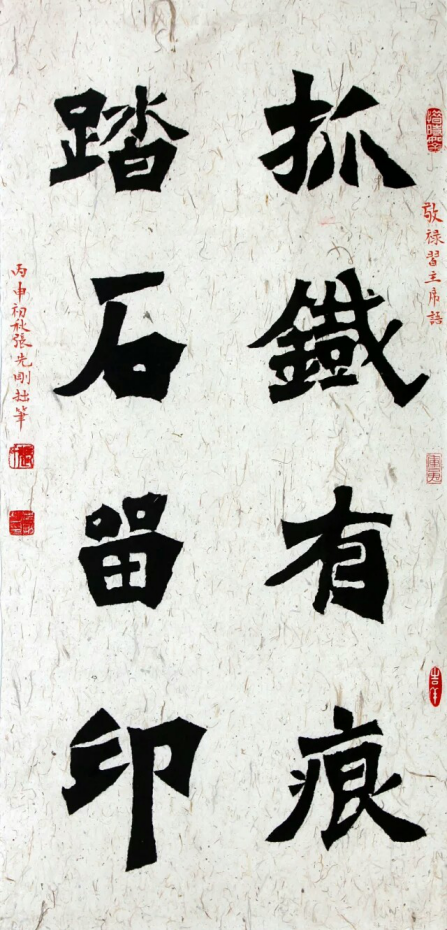 抓鐡有痕
踏石留印
敬禄習主席語
丙申初秋張先剛拙筆
吉羊